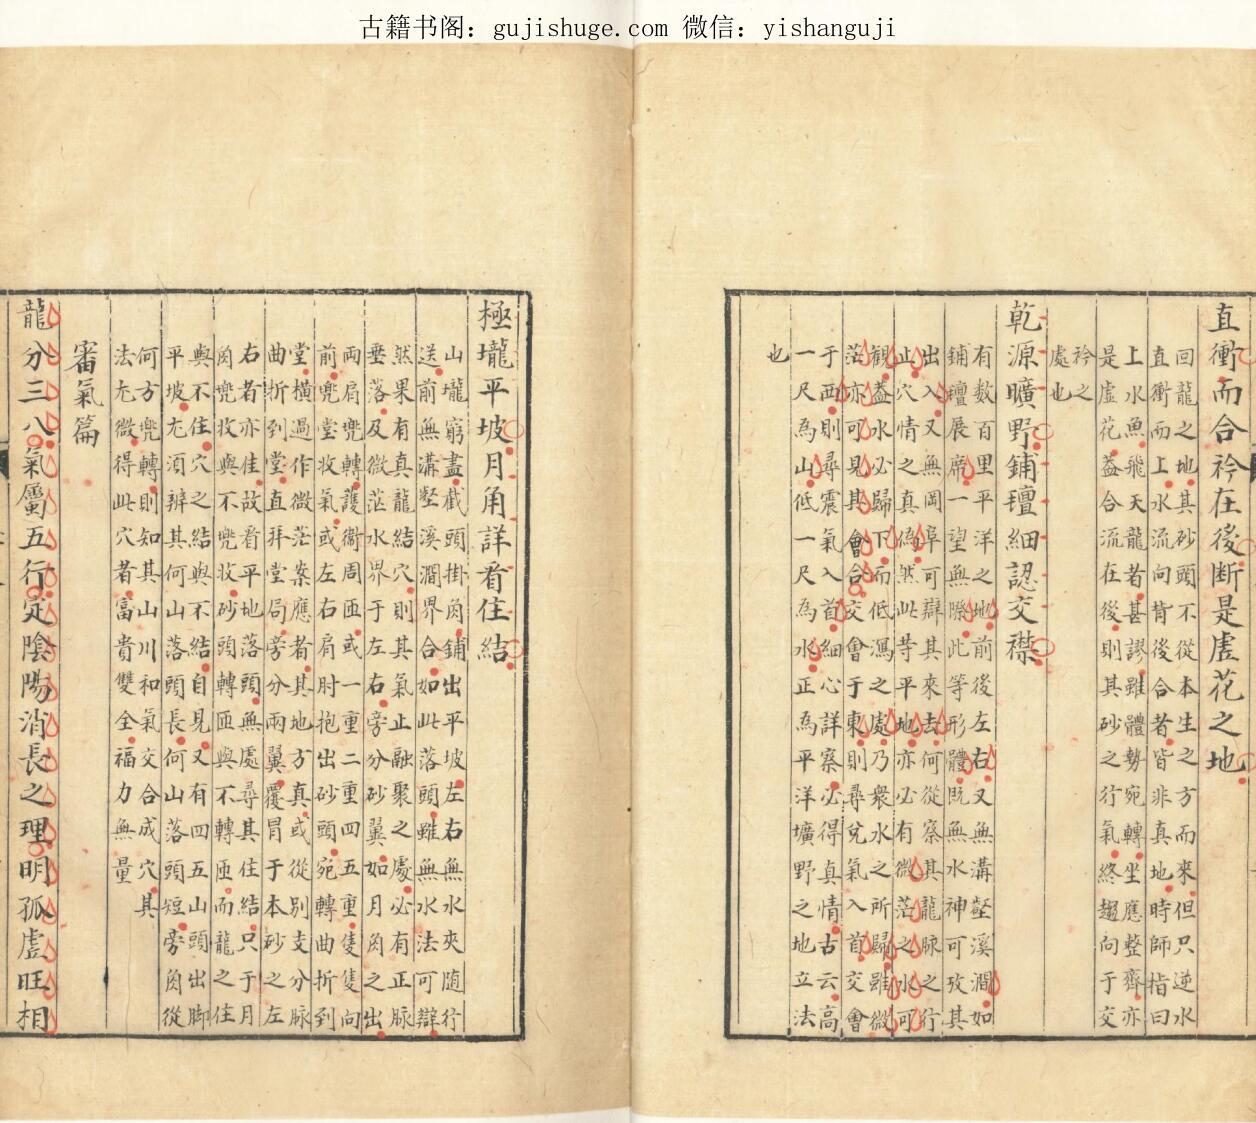 古籍书阁：gujishuge.com 微信：yishanguji
直衝而合衿在後断是虛花之地
回龍之地其砂頭不從本生之方而來但只逆水
直衝而上水流向背後合者皆非真地時師指曰
上水魚飛天龍者甚謬雖體勢宛轉坐應整齊亦
是虛花葢合流在後則其砂之行氣終趨向于交
衿之
處也
乾源曠野鋪氊細認交襟
有数百里平洋之地前後左右又無溝壑溪澗如
鋪氊展席一望無際此等形體既無水神可攷其
出入又無岡阜可辯其來去何從察其龍脉之行
止穴情之真偽然此等平地亦必有微茫之水可
觀葢水必歸下而低漥之處乃衆水之所歸雖微
茫亦可見其會合交會于東則尋兌氣入首交會
于西則尋震氣入首細心詳察必得真情古云高
一尺為山低一尺為水正為平洋壙野之地立法
也
極壠平坡月角詳看住結
山壠窮盡戱頭掛角鋪出平坡左右無水夾随行
送前無溝壑溪澗界合如此落頭雖無水法可辯
然果有真龍結穴則其氣止融聚之處必有正脉
垂落及微茫水界于左右旁分砂翼如月角之出
兩肩兜轉護衞周匝或一重二重四五重隻隻向
前兜堂收氣或左右肩肘抱出砂頭宛轉曲折到
堂橫過作微茫案應者其地方真或從别支分脉
曲折到堂直拜堂局旁分兩翼覆冒于本砂之左
右者亦佳故看平地落頭無處尋其住結只于月
角兜收與不兜收砂頭轉匝與不轉匝而龍之住
與不住穴之結與不結自見又有四五山頭出脚
平坡尤須辨其何山落頭長何山落頭短旁角從
何方兜轉則知其山川和氣交合成穴其
法尤微得此穴者富貴雙全福力無量
審氣篇
龍分三八氣屬五行定陰陽消長之理明孤虛旺相